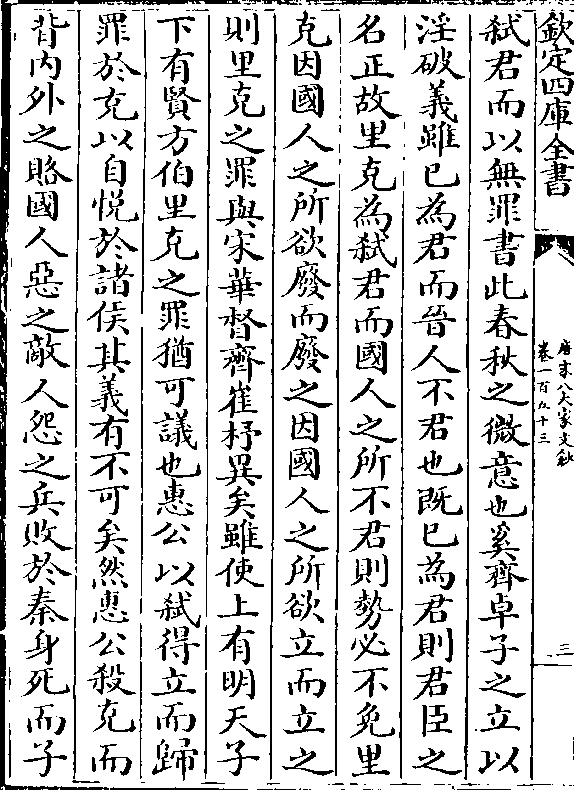 欽定四庫全書
唐宋八大家文鈔
卷一百九十三
三
弑君而以無罪書此春秋之微意也奚齊卓子之立以
淫破義雖已為君而晉人不君也既已為君則君臣之
名正故里克為弑君而國人之所不君則勢必不免里
克因國人之所欲廢而廢之因國人之所欲立而立之
則里克之罪與宋華督齊崔杼異矣雖使上有明天子
下有賢方伯里克之罪猶可議也惠公以弑得立而歸
罪於克以自悦於諸侯其義有不可矣然惠公殺克而
背内外之賂國人惡之敵人怨之兵敗於秦身死而子